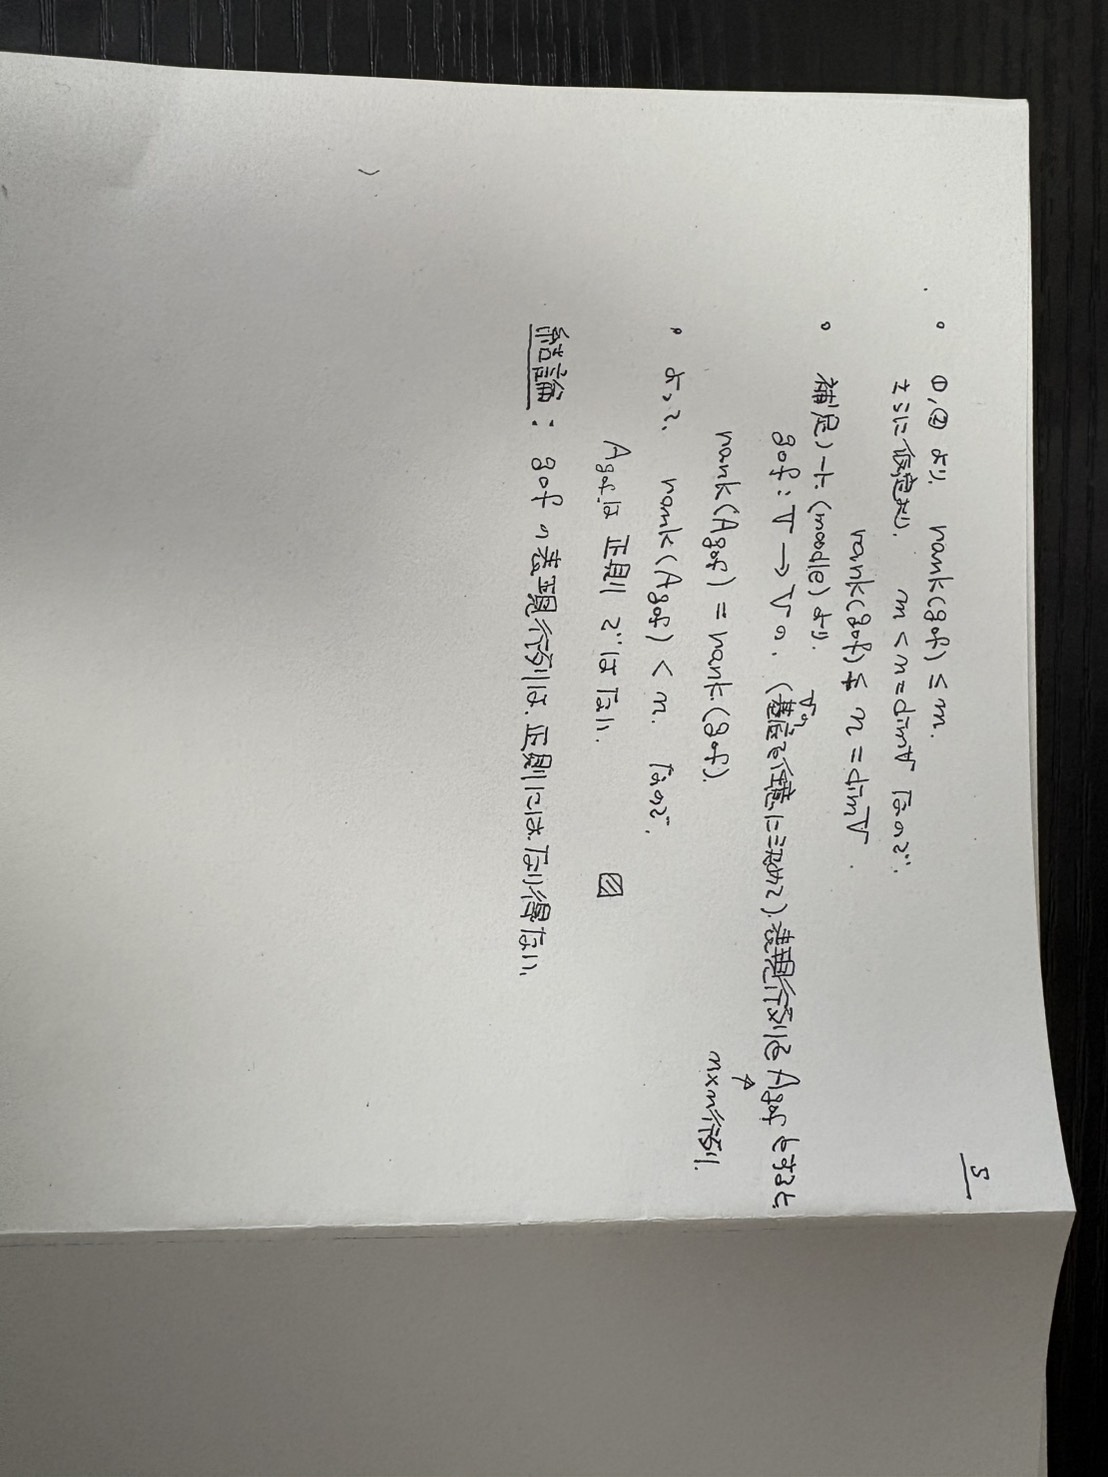 5
・①,② より rank(g∘f) ≤ m.
さらに仮定より, m < n = dimV なので,
rank(g∘f) ≨ n = dimV.
・補足ノート(moodle)より.
g∘f : V → V の, (Vの基底を任意に決めて)表現行列を A_{g∘f} とすると
rank(A_{g∘f}) = rank(g∘f).
↑ n×n行列.
・よって, rank(A_{g∘f}) < n. なので,
A_{g∘f} は 正則 ではない. ▨
結論 : g∘f の表現行列は, 正則にはなり得ない.